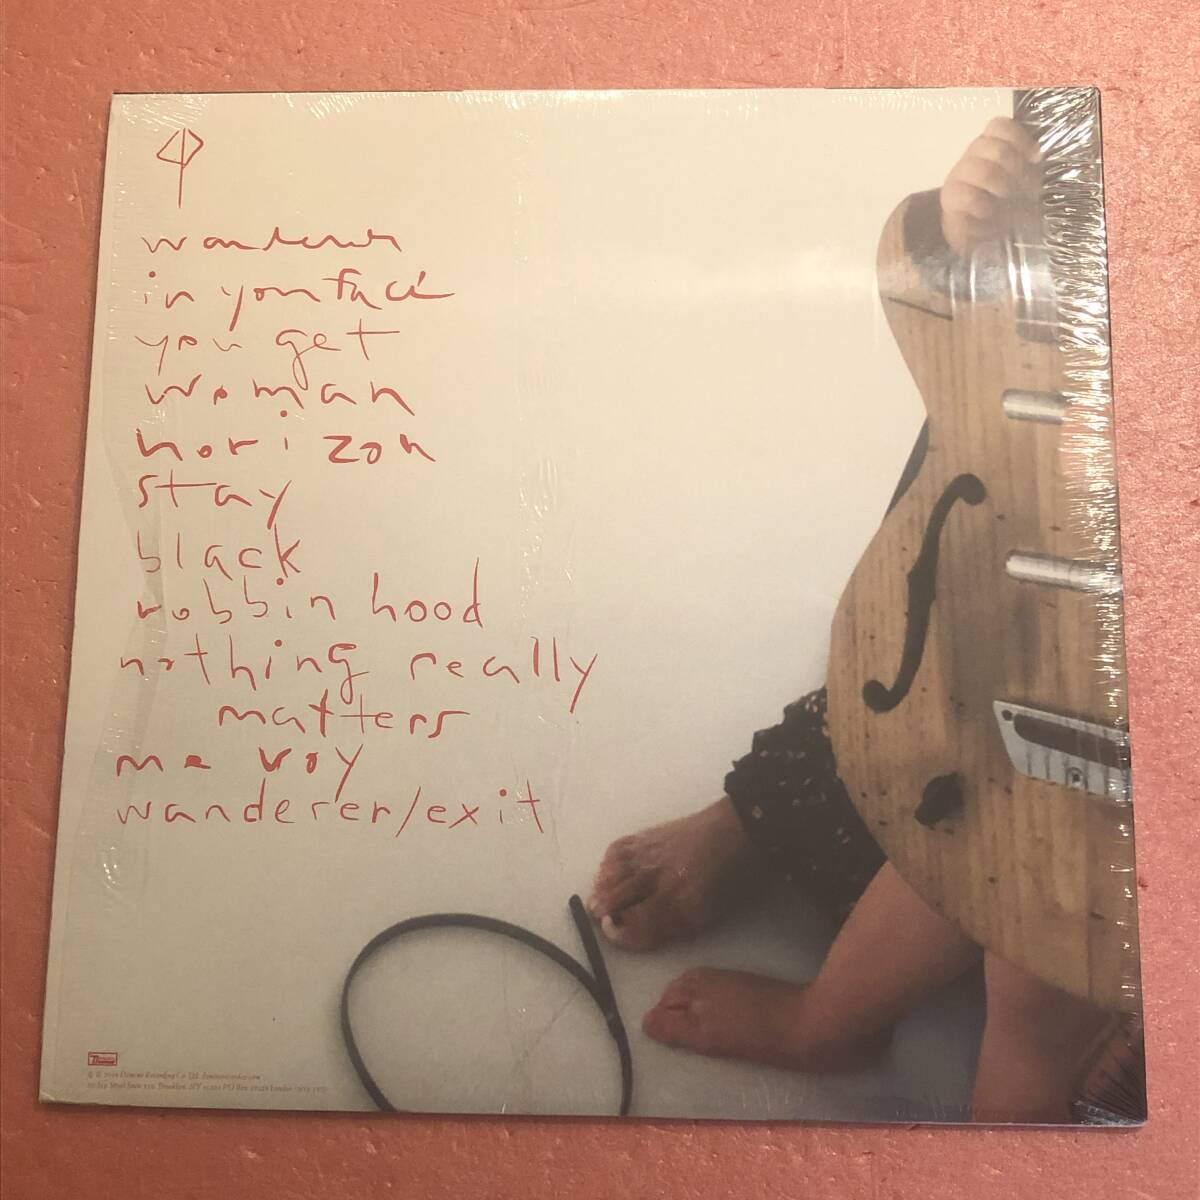 wanderer
in your face
you get
woman
horizon
stay
black
robbin hood
nothing really
matters
me voy
wanderer/exit
Domino
Domino Recording Co Ltd. dominorecordco.com
Brooklyn NY 11201 PO Box London